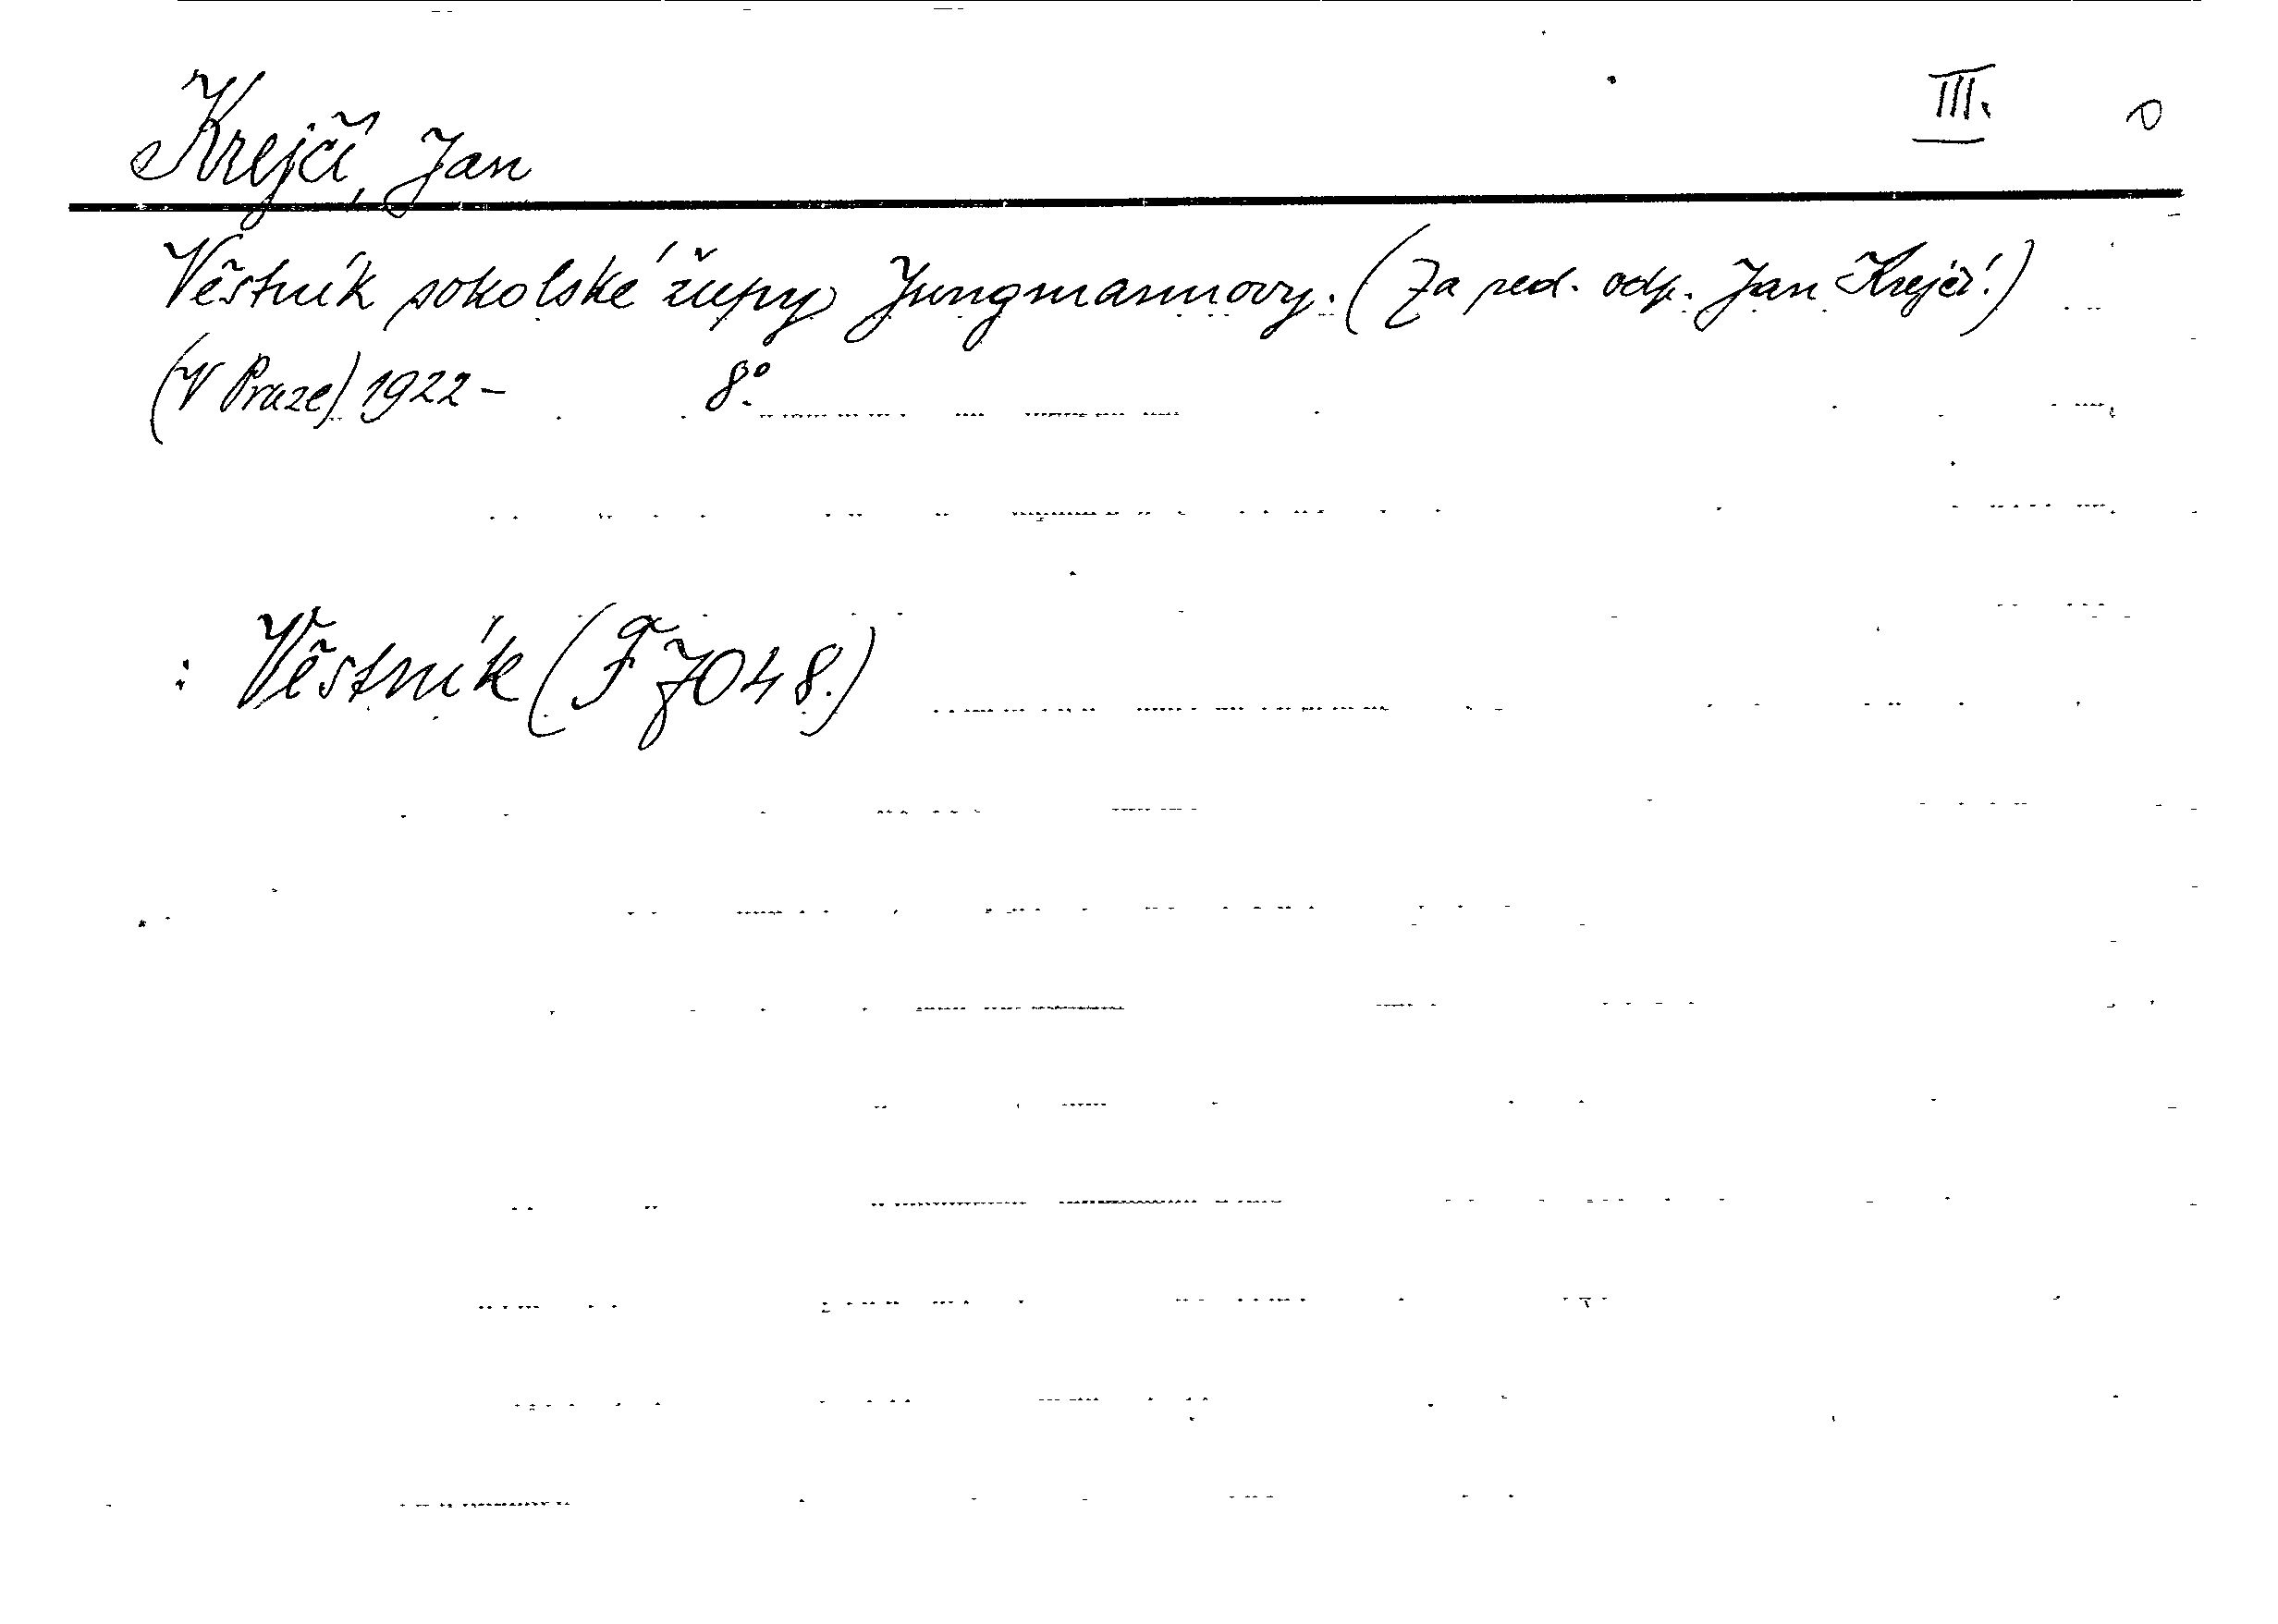 III.
Krejčí, Jan
Věstník sokolské župy Jungmannovy. (Za red. odp. Jan Krejčí.)
(V Praze) 1922 – 8°.
: Věstník (F 7048.)